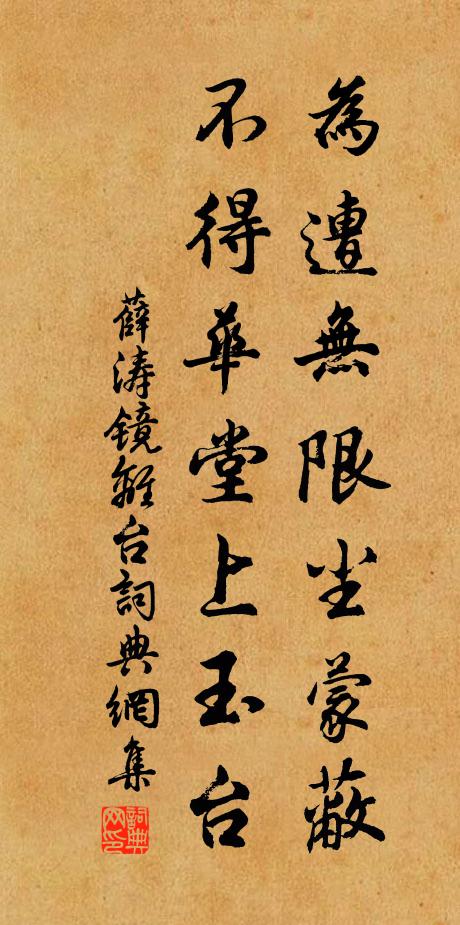 為遭無限尘蒙蔽
不得華堂上玉台
薛涛鏡離台詞典網集
詞典网印